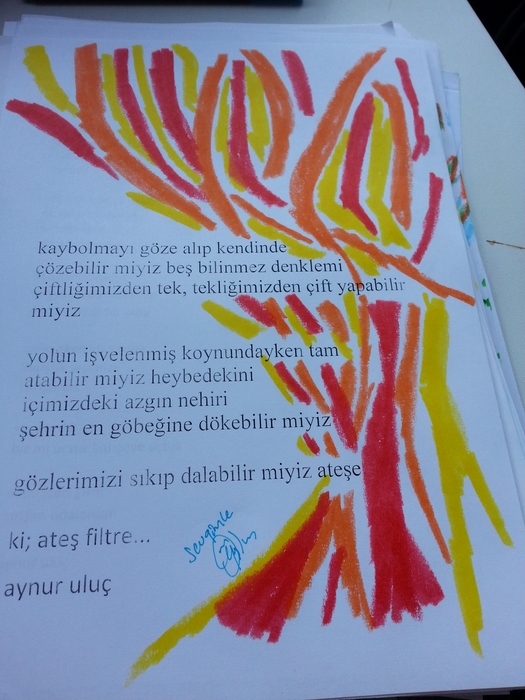 kaybolmayı göze alıp kendinde
çözebilir miyiz beş bilinmez denklemi
çiftliğimizden tek, tekliğimizden çift yapabilir
miyiz
yolun işvelenmiş koynundayken tam
atabilir miyiz heybedekini
içimizdeki azgın nehiri
şehrin en göbeğine dökebilir miyiz
gözlerimizi sıkıp dalabilir miyiz ateşe
ki; ateş filtre...
aynur uluç